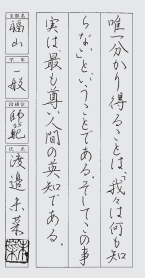 唯一分かり得ることは「我々は何も知
らない」ということである。そしてこの事
実は、最も尊い人間の英知である。
支部名
福山
学年
一般
段級位
師範
氏名
渡邉未菜